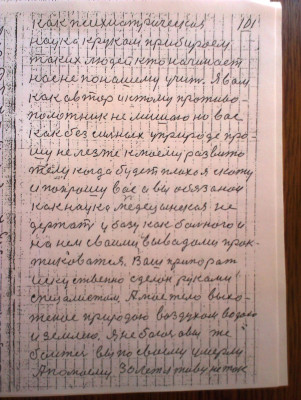 101
как психиотрическая
наука к рукам прибираем
таких людей кто начинает
нас не по нашему учит. Я вам
как автор и стому противо-
полотник не мешаю но вас
как без сильних у природе про-
шу не лезте к моему развито
телу когда будет плохо я скажу
и попрошу вас а вы обязаной
как наука медецинская не
держати у базу как больного и
на нем своими выводами прак-
тиковатся. Ваш припорат
искуственно сделон руками
специалистом. А мое тело выхо-
женое природою воздухом водою
и землею. Я не боюся а вы же
боитеся вы по своему умерли
А по моему Золетя живу не ток